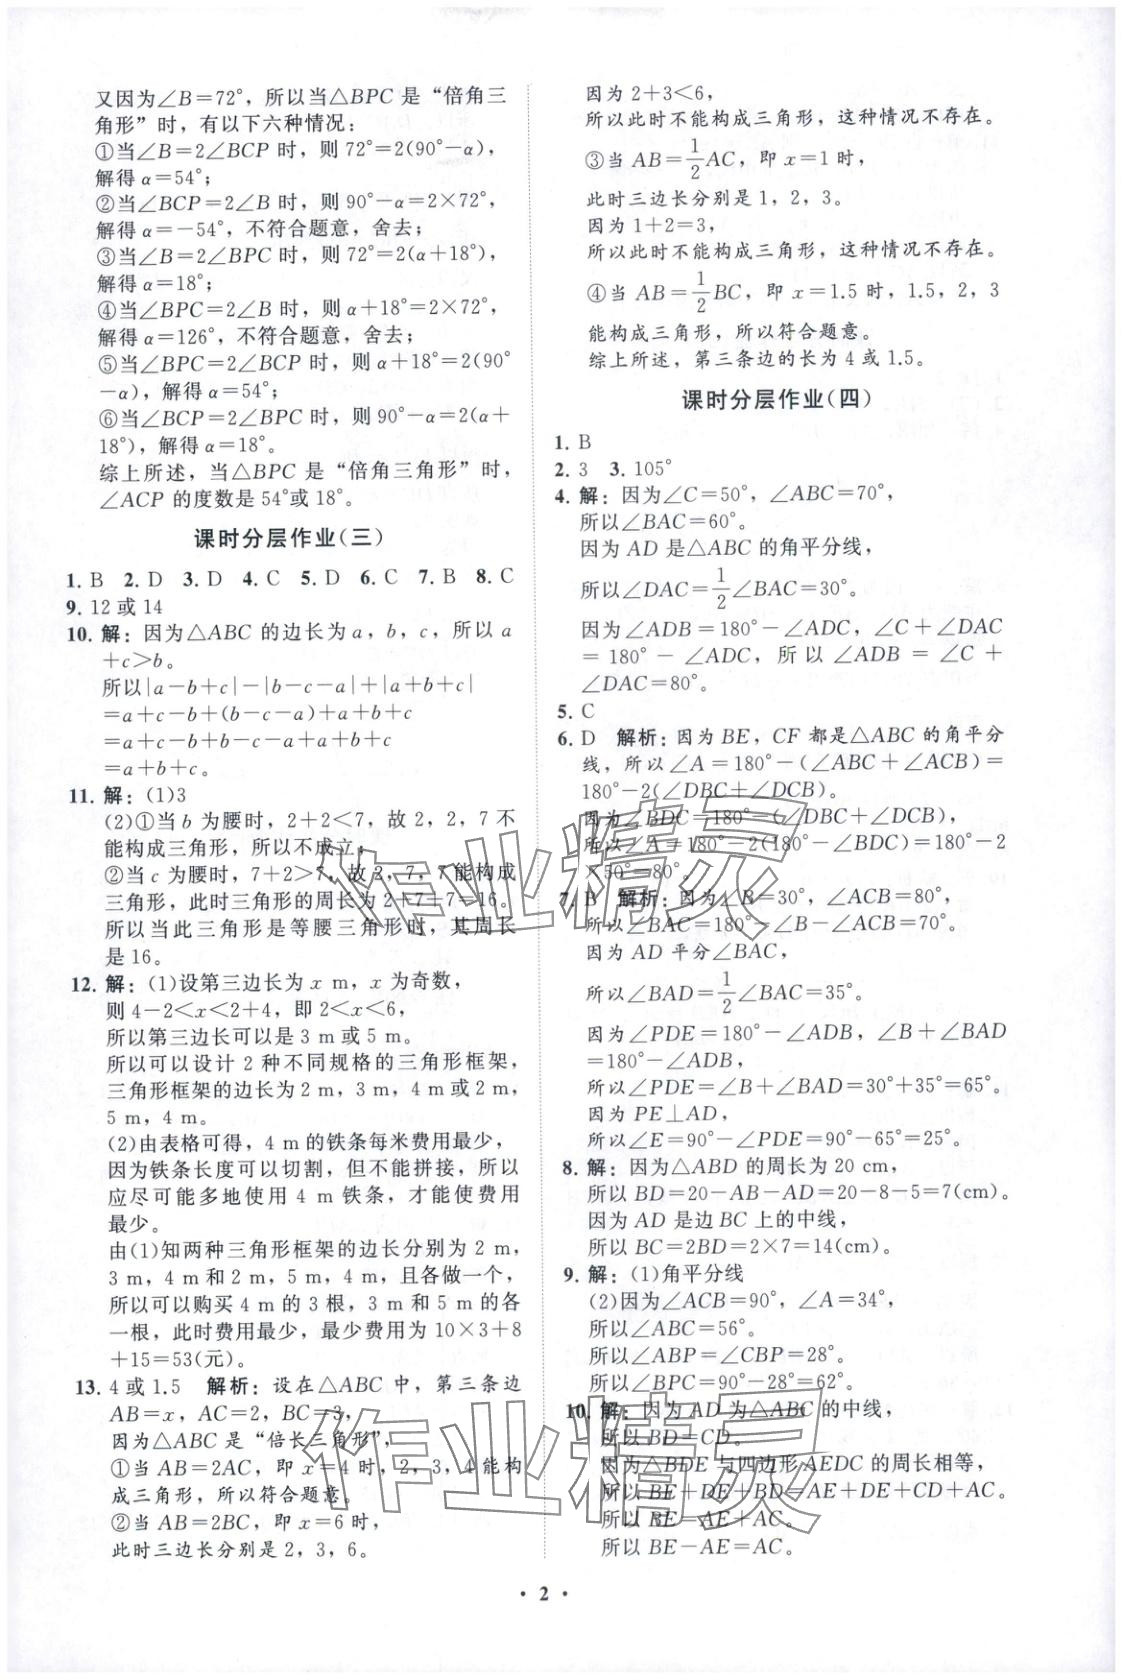 又因为∠B=72°，所以当△BPC 是“倍角三
角形”时，有以下六种情况：
①当∠B=2∠BCP 时，则 72°=2(90°-α)，
解得 α=54°；
②当∠BCP=2∠B 时，则 90°-α=2×72°，
解得 α=-54°，不符合题意，舍去；
③当∠B=2∠BPC 时，则 72°=2(α+18°)，
解得 α=18°；
④当∠BPC=2∠B 时，则 α+18°=2×72°，
解得 α=126°，不符合题意，舍去；
⑤当∠BPC=2∠BCP 时，则 α+18°=2(90°
-α)，解得 α=54°；
⑥当∠BCP=2∠BPC 时，则 90°-α=2(α+
18°)，解得 α=18°。
综上所述，当△BPC 是“倍角三角形”时，
∠ACP 的度数是 54°或 18°。
课时分层作业(三)
1. B 2. D 3. D 4. C 5. D 6. C 7. B 8. C
9. 12 或 14
10. 解：因为△ABC 的边长为 a，b，c，所以 a
+c>b。
所以|a-b+c|-|b-c-a|+|a+b+c|
=a+c-b+(b-c-a)+a+b+c
=a+c-b+b-c-a+a+b+c
=a+b+c。
11. 解：(1)3
(2)①当 b 为腰时，2+2<7，故 2，2，7 不
能构成三角形，所以不成立；
②当 c 为腰时，7+2>7，故 2，7，7 能构成
三角形，此时三角形的周长为 2+7+7=16。
所以当此三角形是等腰三角形时，其周长
是 16。
12. 解：(1)设第三边长为 x m，x 为奇数，
则 4-2<x<2+4，即 2<x<6，
所以第三边长可以是 3 m 或 5 m。
所以可以设计 2 种不同规格的三角形框架，
三角形框架的边长为 2 m，3 m，4 m 或 2 m，
5 m，4 m。
(2)由表格可得，4 m 的铁条每米费用最少，
因为铁条长度可以切割，但不能拼接，所以
应尽可能多地使用 4 m 铁条，才能使费用
最少。
由(1)知两种三角形框架的边长分别为 2 m，
3 m，4 m 和 2 m，5 m，4 m，且各做一个，
所以可以购买 4 m 的 3 根，3 m 和 5 m 的各
一根，此时费用最少，最少费用为 10×3+8
+15=53(元)。
13. 4 或 1.5 解析：设在△ABC 中，第三条边
AB=x，AC=2，BC=3，
因为△ABC 是“倍长三角形”，
①当 AB=2AC，即 x=4 时，2，3，4 能构
成三角形，所以符合题意。
②当 AB=2BC，即 x=6 时，
此时三边长分别是 2，3，6。
因为 2+3<6，
所以此时不能构成三角形，这种情况不存在。
③当 AB=1/2AC，即 x=1 时，
此时三边长分别是 1，2，3。
因为 1+2=3，
所以此时不能构成三角形，这种情况不存在。
④当 AB=1/2BC，即 x=1.5 时，1.5，2，3
能构成三角形，所以符合题意。
综上所述，第三条边的长为 4 或 1.5。
课时分层作业(四)
1. B
2. 3 3. 105°
4. 解：因为∠C=50°，∠ABC=70°，
所以∠BAC=60°。
因为 AD 是△ABC 的角平分线，
所以∠DAC=1/2∠BAC=30°。
因为∠ADB=180°-∠ADC，∠C+∠DAC
=180°-∠ADC，所以∠ADB=∠C+
∠DAC=80°。
5. C
6. D 解析：因为 BE，CF 都是△ABC 的角平分
线，所以∠A=180°-(∠ABC+∠ACB)=
180°-2(∠DBC+∠DCB)。
因为∠BDC=180°-(∠DBC+∠DCB)，
所以∠A=180°-2(180°-∠BDC)=180°-2
×50°=80°。
7. B 解析：因为∠B=30°，∠ACB=80°，
所以∠BAC=180°-∠B-∠ACB=70°。
因为 AD 平分∠BAC，
所以∠BAD=1/2∠BAC=35°。
因为∠PDE=180°-∠ADB，∠B+∠BAD
=180°-∠ADB，
所以∠PDE=∠B+∠BAD=30°+35°=65°。
因为 PE⊥AD，
所以∠E=90°-∠PDE=90°-65°=25°。
8. 解：因为△ABD 的周长为 20 cm，
所以 BD=20-AB-AD=20-8-5=7(cm)。
因为 AD 是边 BC 上的中线，
所以 BC=2BD=2×7=14(cm)。
9. 解：(1)角平分线
(2)因为∠ACB=90°，∠A=34°，
所以∠ABC=56°。
所以∠ABP=∠CBP=28°。
所以∠BPC=90°-28°=62°。
10. 解：因为 AD 为△ABC 的中线，
所以 BD=CD。
因为△BDE 与四边形 AEDC 的周长相等，
所以 BE+DE+BD=AE+DE+CD+AC。
所以 BE=AE+AC。
所以 BE-AE=AC。
• 2 •
作业精灵
作业精灵